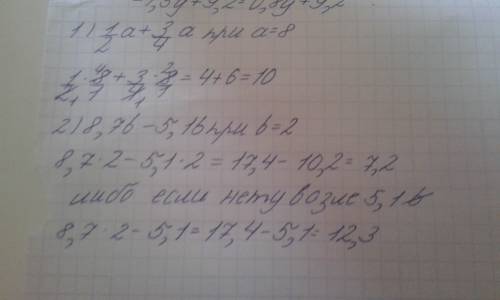 -1,5y+9,2=0,8y+9,2
1) 1/2 a + 3/4 a при a=8
1/2 · 8/1 + 3/4 · 8/1 = 4+6=10
2) 8,7b-5,1b при b=2
8,7·2-5,1·2=17,4-10,2=7,2
либо если нету возле 5,1 b
8,7·2-5,1=17,4-5,1=12,3